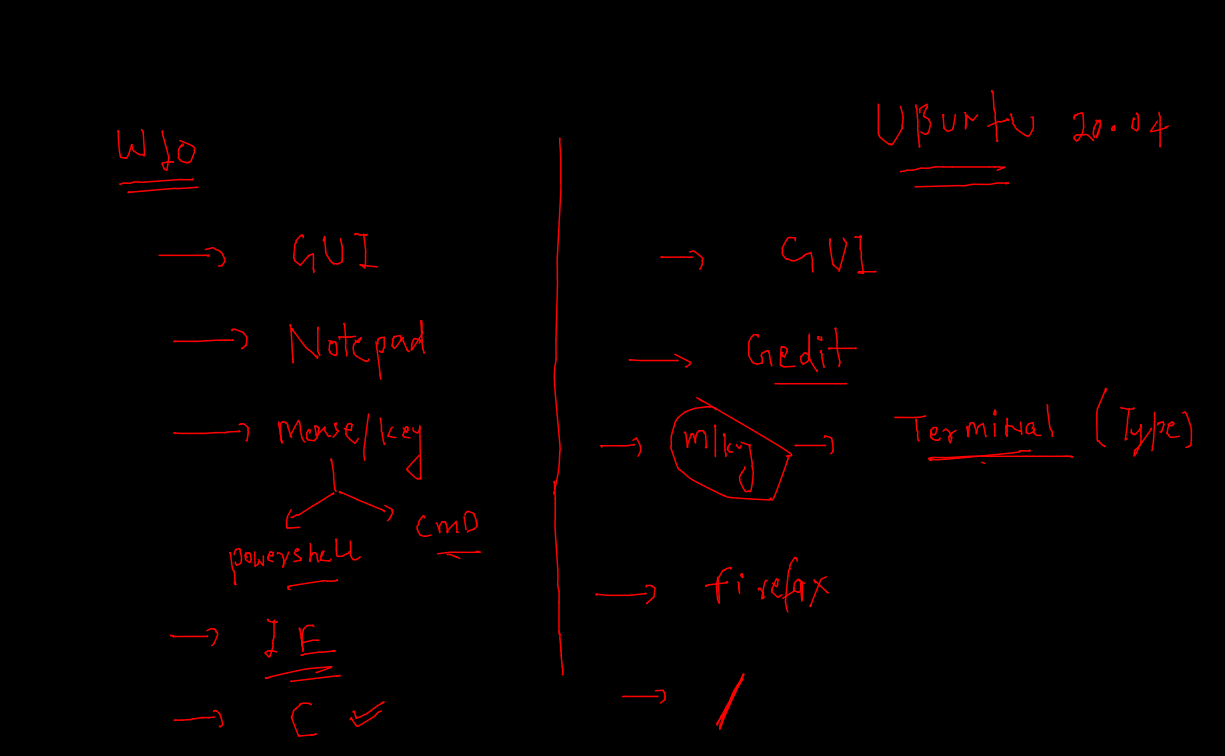 W10
→ GUI
→ Notepad
→ Mouse/key
powershell
CMD
→ IE
→ C ✓
Ubuntu 20.04
→ GUI
→ Gedit
→ M/key → Terminal (Type)
→ firefox
→ /